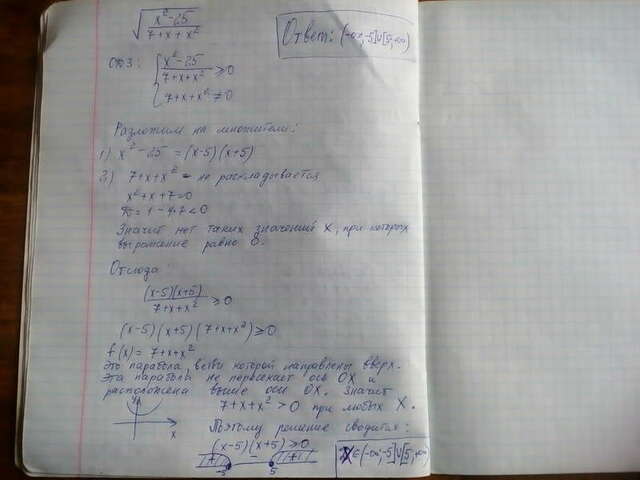 √((x²-25)/(7+x+x²))
Ответ: (-∞;-5]∪[5;+∞)
ОДЗ: { (x²-25)/(7+x+x²) ≥0
7+x+x² ≠0
Разложим на множители:
1) x²-25 = (x-5)(x+5)
2) 7+x+x² - не раскладывается
x²+x+7=0
D=1-4·7<0
Значит нет таких значений x, при которых
выражение равно 0.
Отсюда:
((x-5)(x+5))/(7+x+x²) ≥0
(x-5)(x+5)(7+x+x²)≥0
f(x)= 7+x+x²
Это парабола, ветви которой направлены вверх.
Эта парабола не пересекает ось OX и
расположена выше оси OX. Значит
7+x+x²>0 при любых x.
y
x
Поэтому решение сводится:
(x-5)(x+5)≥0
+ - +
-5 5
x∈(-∞;-5]∪[5;+∞)